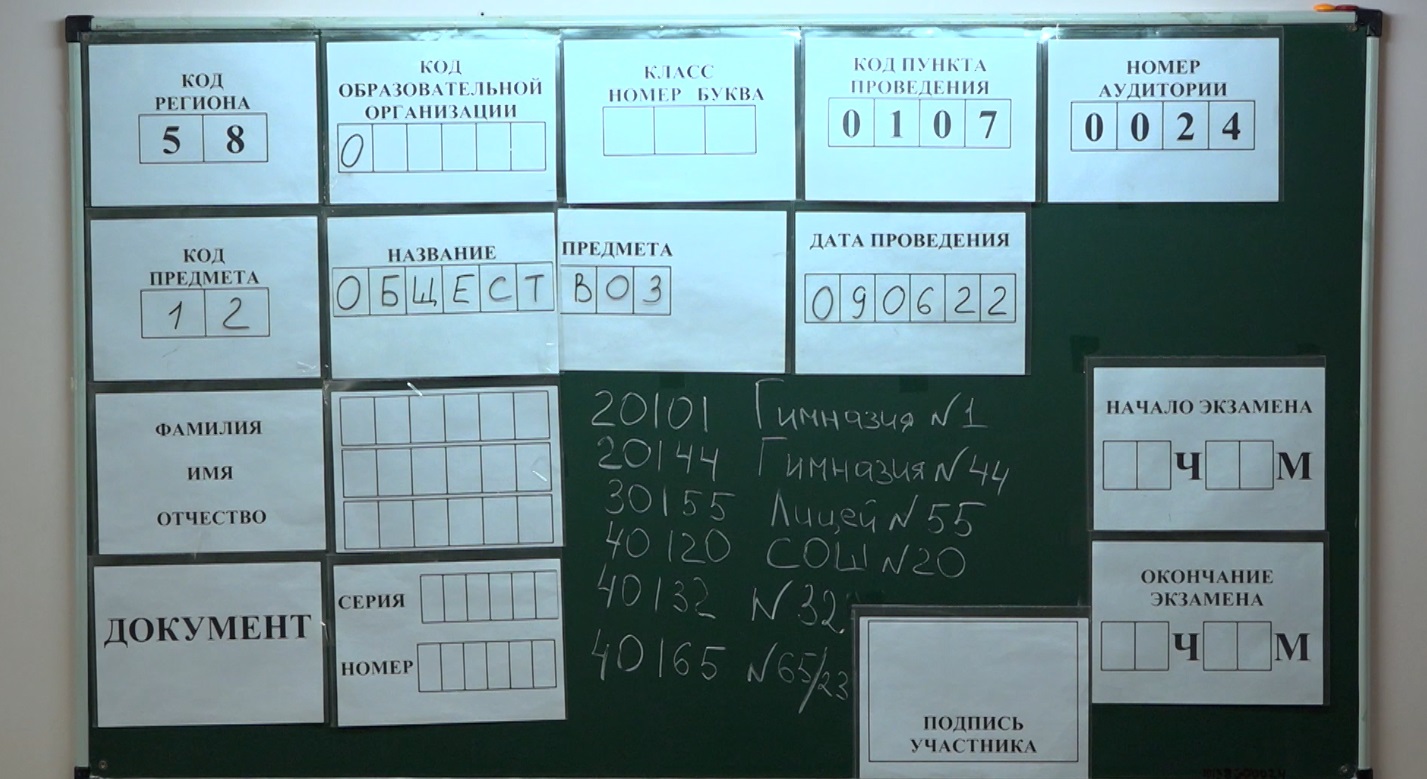 КОД
РЕГИОНА
5 8
КОД
ОБРАЗОВАТЕЛЬНОЙ
ОРГАНИЗАЦИИ
0
КЛАСС
НОМЕР БУКВА
КОД ПУНКТА
ПРОВЕДЕНИЯ
0 1 0 7
НОМЕР
АУДИТОРИИ
0 0 2 4
КОД
ПРЕДМЕТА
1 2
НАЗВАНИЕ ПРЕДМЕТА
ОБЩЕСТВОЗ
ДАТА ПРОВЕДЕНИЯ
090622
ФАМИЛИЯ
ИМЯ
ОТЧЕСТВО
20101 Гимназия №1
20144 Гимназия №44
30155 Лицей №55
40120 СОШ №20
40132 №32
40165 №65/23
НАЧАЛО ЭКЗАМЕНА
Ч М
ДОКУМЕНТ
СЕРИЯ
НОМЕР
ОКОНЧАНИЕ
ЭКЗАМЕНА
Ч М
ПОДПИСЬ
УЧАСТНИКА